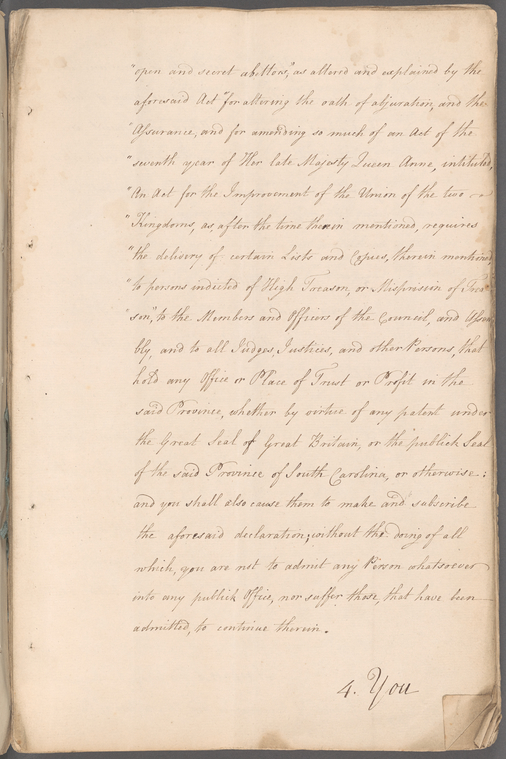 "open and secret abettors," as altered and explained by the
aforesaid Act "for altering the oath of abjuration, and the
"Assurance, and for amending so much of an Act of the
"seventh year of Her late Majesty Queen Anne, intituled,
"An Act for the Improvement of the Union of the two
"Kingdoms, as, after the time therein mentioned, requires
"the delivery of certain Lists and Copies, therein mentioned,
"to persons indicted of High Treason, or Misprision of Trea-
"son," to the Members and Officers of the Council, and Assem-
bly, and to all Judges, Justices, and other Persons, that
hold any Office or Place of Trust or Profit in the
said Province, whether by virtue of any patent under
the Great Seal of Great Britain, or the publick Seal
of the said Province of South Carolina, or otherwise:
and you shall also cause them to make and subscribe
the aforesaid declaration; without the doing of all
which, you are not to admit any Person whatsoever
into any publick Office, nor suffer those, that have been
admitted, to continue therein.
4. You